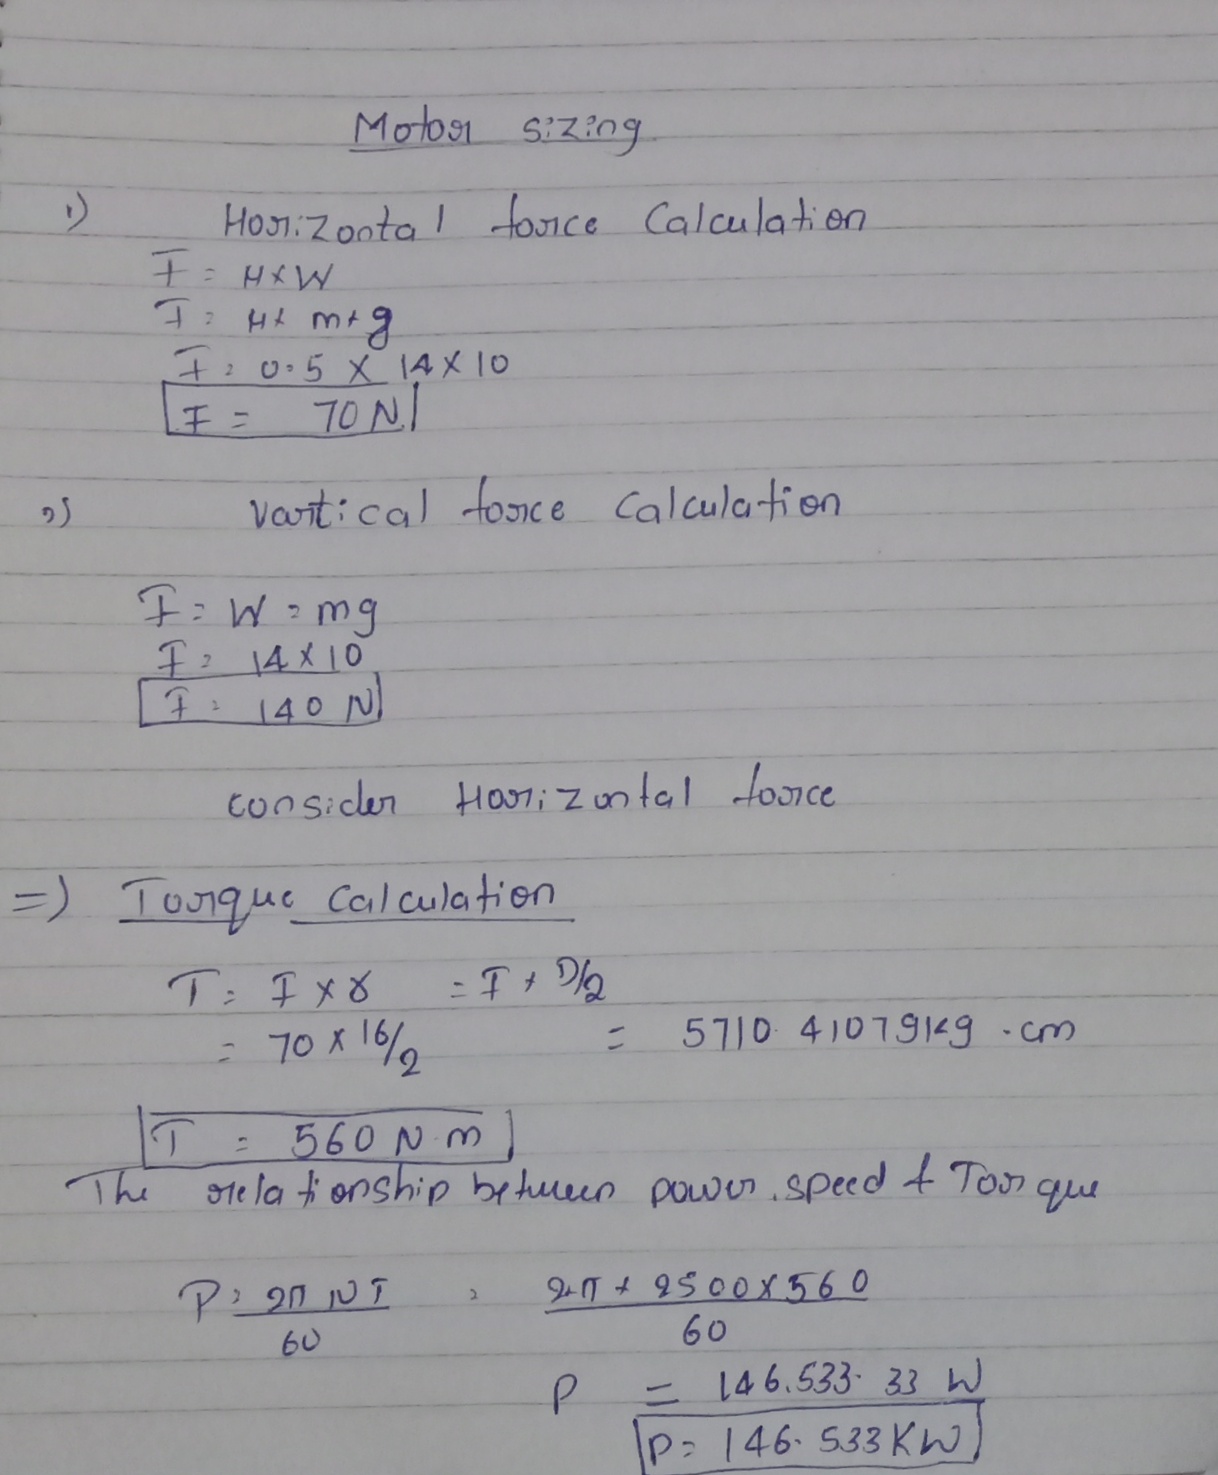 Motor sizing
1) Horizontal force Calculation
F = μ×W
F = μ× m×g
F = 0.5 × 14×10
F = 70 N
2) Vartical force Calculation
F = W = mg
F = 14×10
F = 140 N
consider Horizontal force
=) Torque Calculation
T = F×r = F × D/2
= 70 × 16/2 = 5710.41079kg.cm
T = 560 N.m
The relationship between power, speed & Torque
P = 2π NT / 60 = 2π × 2500×560 / 60
P = 146.533.33 W
P = 146.533 KW